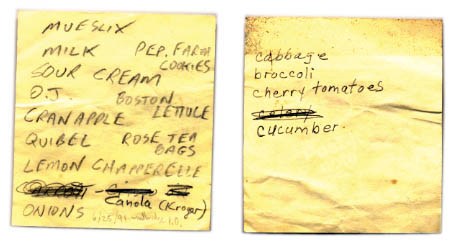 MUESLIX
MILK PEP. FARM
COOKIES
SOUR CREAM
O.J. BOSTON
LETTUCE
CRANAPPLE
QUIBEL ROSE TEA
BAGS
LEMON CHAPPERELLE
Canola (Kroger)
ONIONS
cabbage
broccoli
cherry tomatoes
celery
cucumber